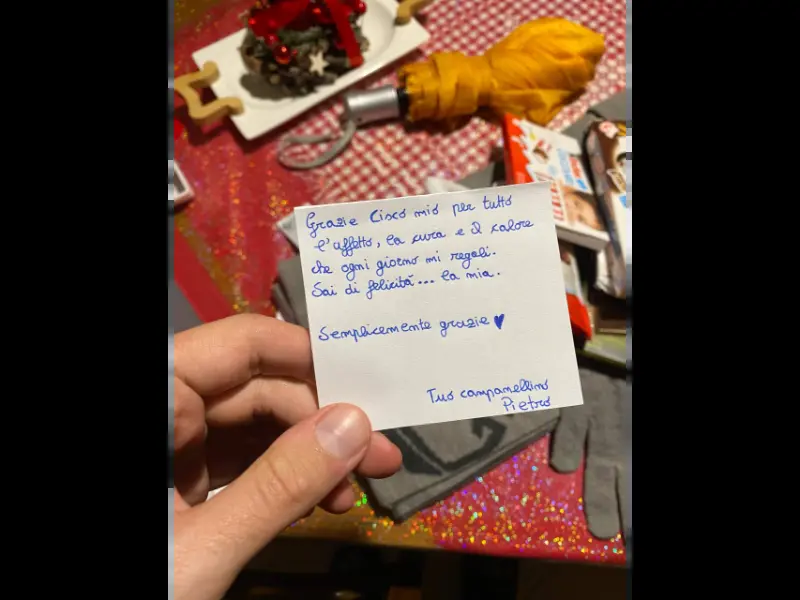 Grazie Cisco mio per tutto
l'affetto, la cura e il calore
che ogni giorno mi regali.
Sai di felicità... la mia.
Semplicemente grazie ♥
Tuo campanellino
Pietro